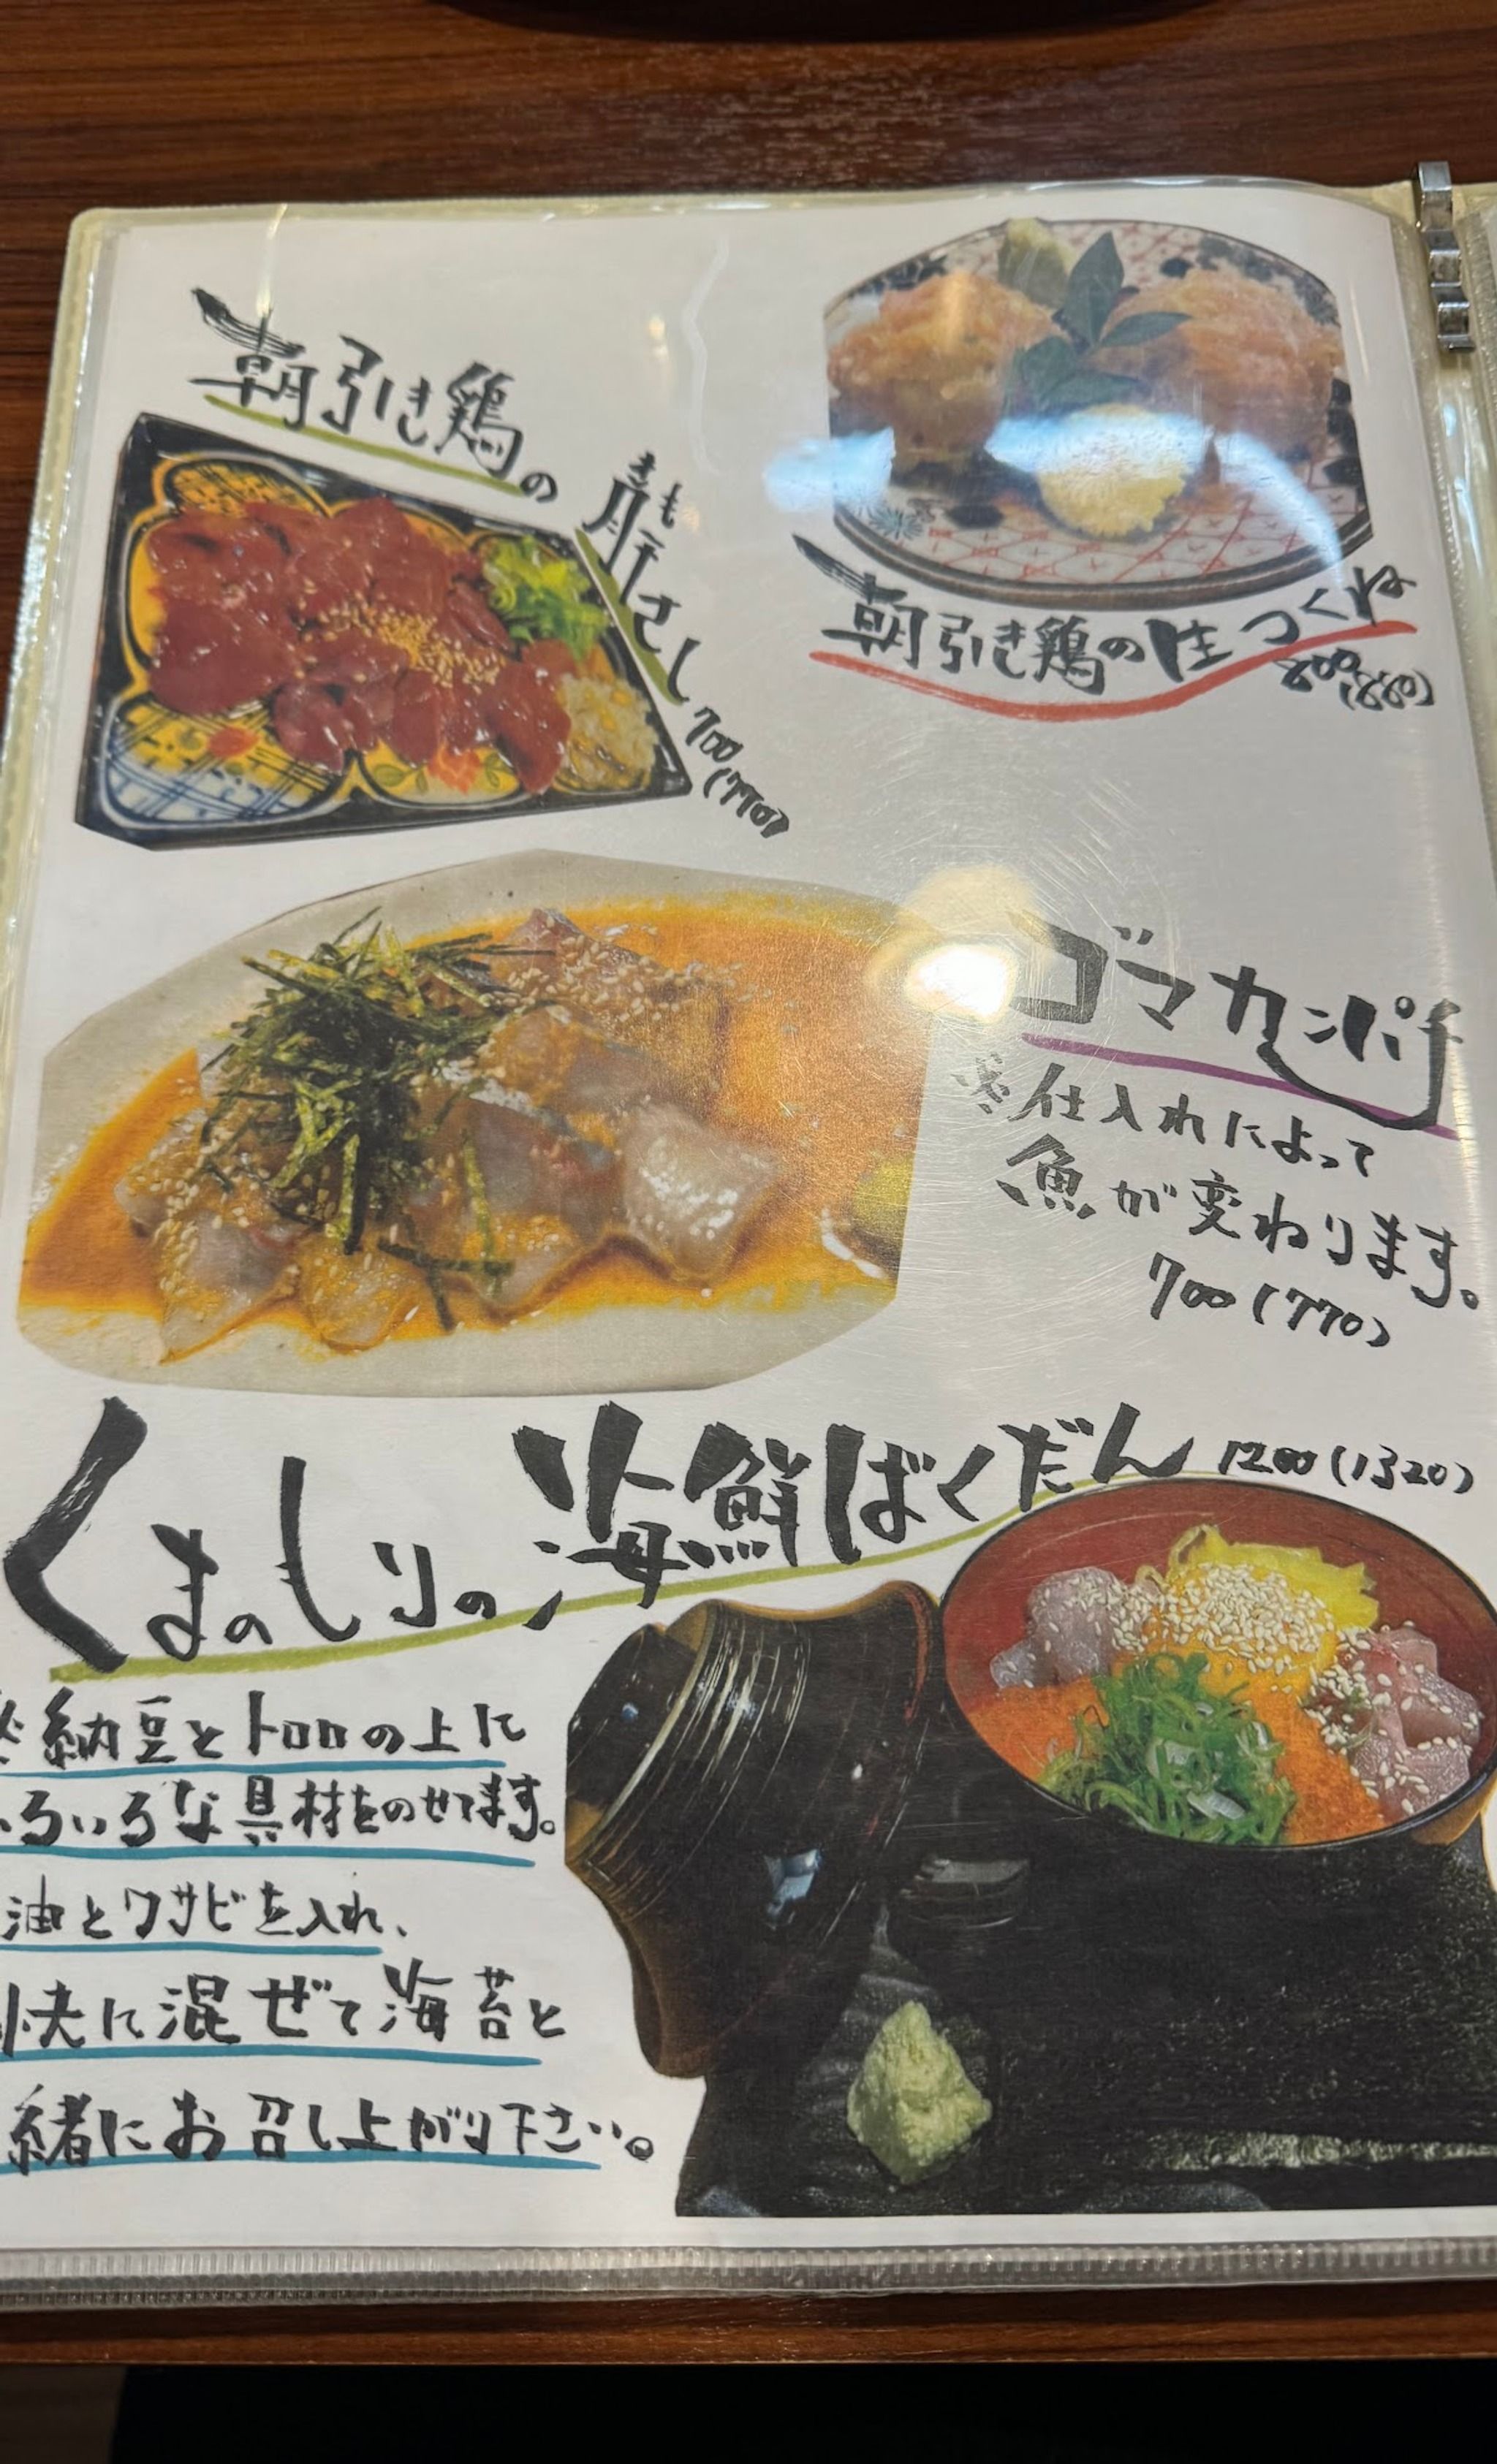 朝引き鶏の
肝さし
きも
700
(770)
朝引き鶏の生つくね
800
(880)
ゴマカンパチ
※仕入れによって
魚が変わります。
700(770)
くまのしりの海鮮ばくだん 1200(1320)
※納豆とトロロの上に
いろいろな具材をのせてます。
油とワサビを入れ、
快に混ぜて海苔と
緒にお召し上がり下さい。